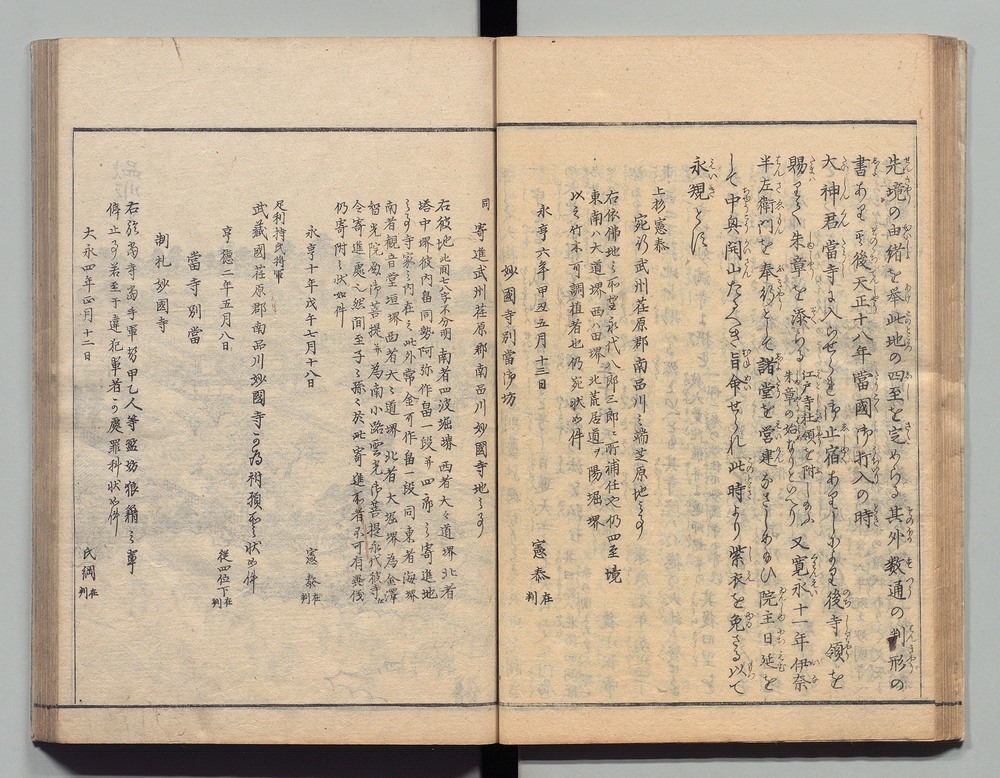 先境の由緒を挙此地の四至を定めらる其外数通の判形の
書あり其後天正十八年當國御打入の時
大神君當寺に入らせられ御止宿ありしより後寺領を
賜りて朱章を添らる江戸寺社領を附しふ朱章の始なりといへり又寛永十一年伊奈
半左衛門を奉行として諸堂を営建なさしめたまひ院主日延を
して中興開山たるべき旨命せられ此時より紫衣を免さる以て
永規とす
上杉憲泰
宛行武州荏原郡南品川之端芝原地之事
右依佛地之所望永代八郎三郎之所補任也仍四至境
東南ハ大道堺西ハ田堺北荒居道ヲ陽堀堺
以之竹木可調植者也仍宛状如件
永亨六年甲丑五月十三日 憲泰在判
妙國寺別當御坊
同 寄進武州荏原郡南品川妙國寺地之事
右彼地此間七八字不分明南者四波堀堺西者大々道堺北者
塔中堺彼内畠同勢阿弥作畠一段并四郎之寄進地
之事寺家之内在之此外常金可作畠一段同東者海堺
南者観音堂垣堺西者大之道堺北者大堀堺為金澤
智光院為御菩提并為南小路雲光御菩提永代彼寺
令寄進處之然間至子之孫之於此寄進不者不可有異儀
仍寄附之状如件
永亨十年戊午七月十八日 憲泰在判
足利持氏将軍
武藏國荏原郡南品川妙國寺可為祈願所之状如件
亨徳二年五月八日 従四位下在判
當寺別當
制札 妙國寺
右於當寺為當手軍勢甲乙人等濫妨狼藉之事
停止事若至于違犯軍者可處罪科状如件
大永四年正月十二日 氏綱在判